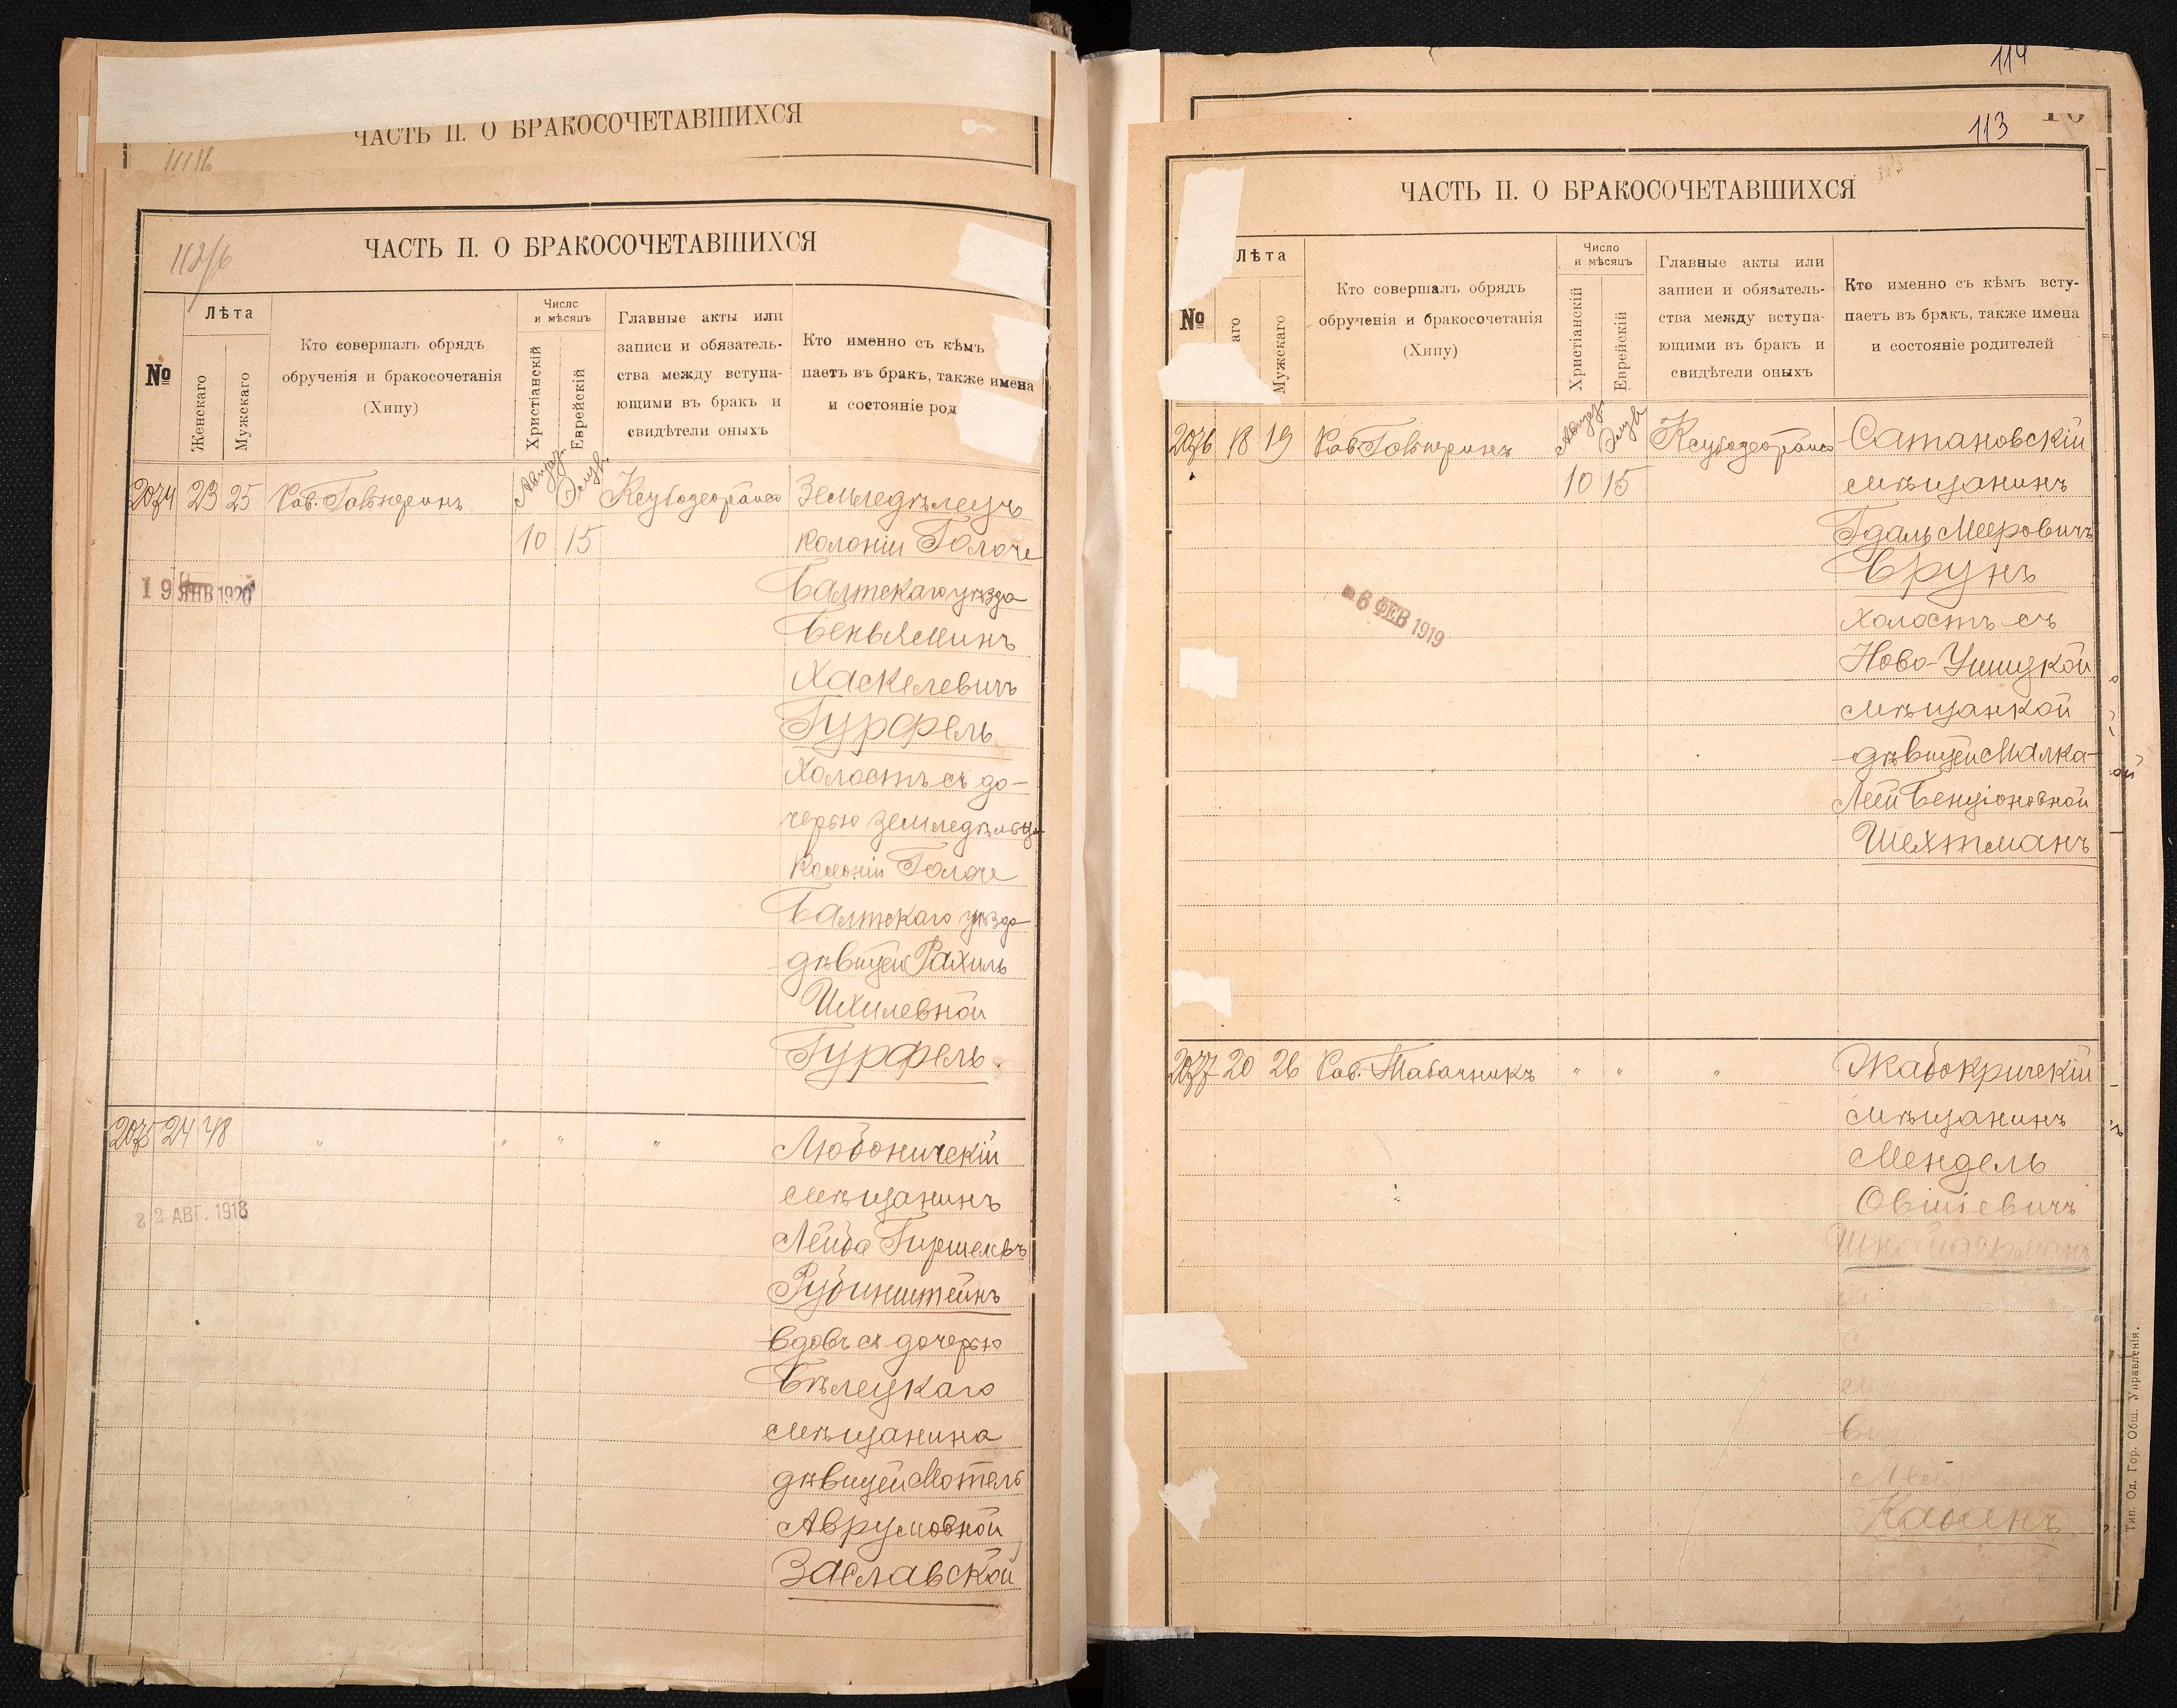 ЧАСТЬ II. О БРАКОСОЧЕТАВШИХСЯ
ЧАСТЬ II. О БРАКОСОЧЕТАВШИХСЯ
№
Лѣта
Женскаго
Мужскаго
Кто совершалъ обрядъ
обрученія и бракосочетанія
(Хипу)
Число
и мѣсяцъ
Христіанскій
Еврейскій
Главные акты или
записи и обязатель-
ства между вступа-
ющими въ бракъ и
свидѣтели оныхъ
Кто именно съ кѣмъ
паетъ въ бракъ, также имена
и состояніе род
2074 23 25 Рав. 10 15
Земледѣлецъ
колоніи Голоче
Балтскаго уѣзда
Беньяминъ
Хаскелевичъ
Гурфель
холостъ съ до-
черью земледѣльца
колоніи Голоче
Балтскаго уѣзда
дѣвицей Рахиль
Ихилевной
Гурфель.
19 ЯНВ 1920
2075 24 48 " " " "
Любоничскій
мѣщанинъ
Лейба Гиршевъ
Рубинштейнъ
вдовъ съ дочерью
Бѣлецкаго
мѣщанина
дѣвицей Мотель
Аврумовной
Заславской
22 АВГ. 1918
114
113
ЧАСТЬ II. О БРАКОСОЧЕТАВШИХСЯ
№
Лѣта
аго
Мужскаго
Кто совершалъ обрядъ
обрученія и бракосочетанія
(Хипу)
Число
и мѣсяцъ
Христіанскій
Еврейскій
Главные акты или
записи и обязатель-
ства между вступа-
ющими въ бракъ и
свидѣтели оныхъ
Кто именно съ кѣмъ всту-
паетъ въ бракъ, также имена
и состояніе родителей
2076 18 19 Рав. 10 15
Сатановскій
мѣщанинъ
Гдаль Мееровичъ
Брунъ
холостъ съ
Ново-Ушицкой
мѣщанкой
дѣвицей Малка-
Леей Бенціоновной
Шехтманъ
6 ФЕВ 1919
2077 20 26 Рав. Табачникъ " " "
Жабокричскій
мѣщанинъ
Мендель
Овшіевичъ
Шнайдерманъ
Каганъ
Тип. Од. Гор. Общ. Управленія.